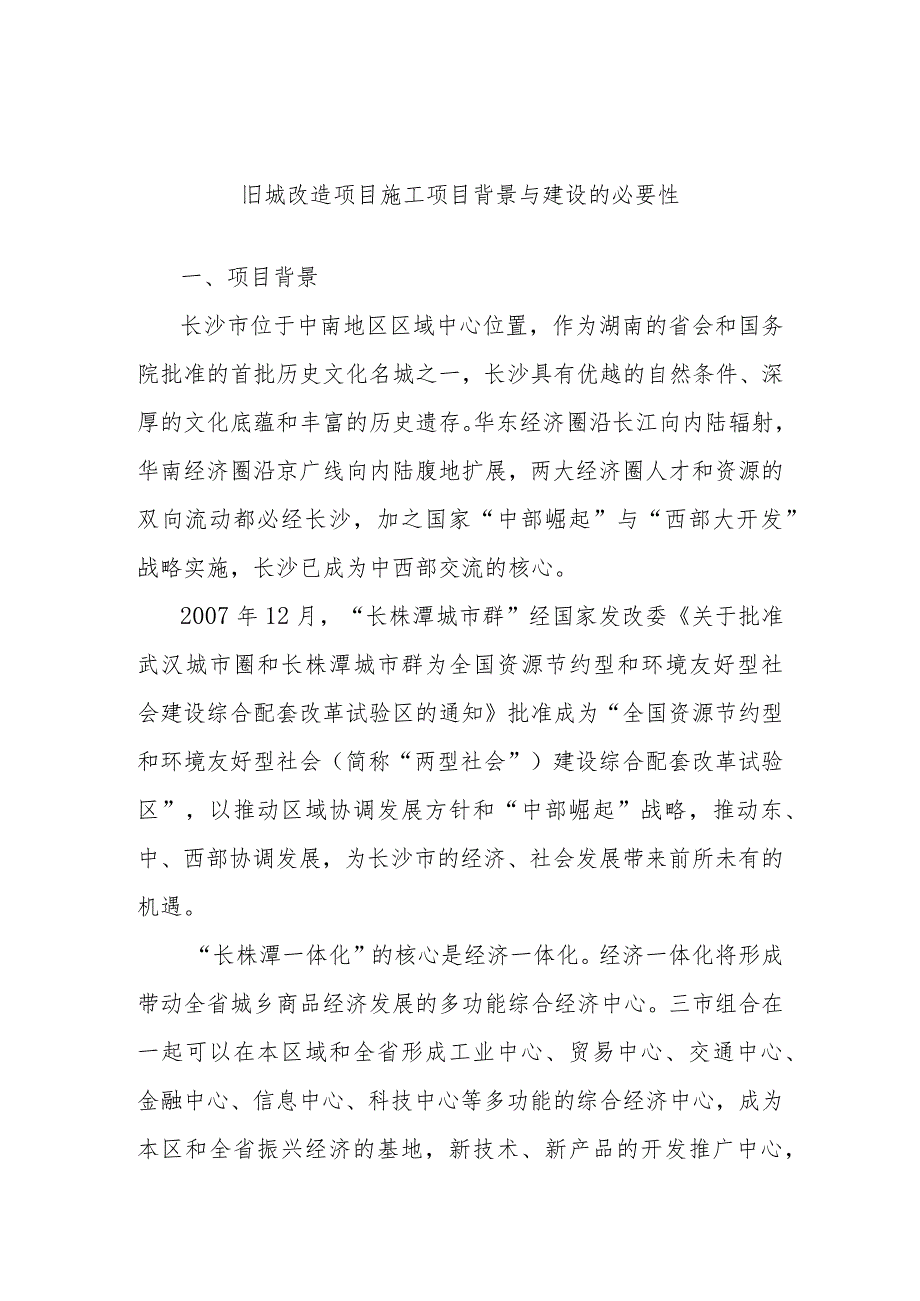 旧城改造项目施工项目背景与建设的必要性
一、项目背景
长沙市位于中南地区区域中心位置，作为湖南的省会和国务
院批准的首批历史文化名城之一，长沙具有优越的自然条件、深
厚的文化底蕴和丰富的历史遗存。华东经济圈沿长江向内陆辐射，
华南经济圈沿京广线向内陆腹地扩展，两大经济圈人才和资源的
双向流动都必经长沙，加之国家“中部崛起”与“西部大开发”
战略实施，长沙已成为中西部交流的核心。
2007 年 12 月，“长株潭城市群”经国家发改委《关于批准
武汉城市圈和长株潭城市群为全国资源节约型和环境友好型社
会建设综合配套改革试验区的通知》批准成为“全国资源节约型
和环境友好型社会（简称“两型社会”）建设综合配套改革试验
区”，以推动区域协调发展方针和“中部崛起”战略，推动东、
中、西部协调发展，为长沙市的经济、社会发展带来前所未有的
机遇。
“长株潭一体化”的核心是经济一体化。经济一体化将形成
带动全省城乡商品经济发展的多功能综合经济中心。三市组合在
一起可以在本区域和全省形成工业中心、贸易中心、交通中心、
金融中心、信息中心、科技中心等多功能的综合经济中心，成为
本区和全省振兴经济的基地，新技术、新产品的开发推广中心，